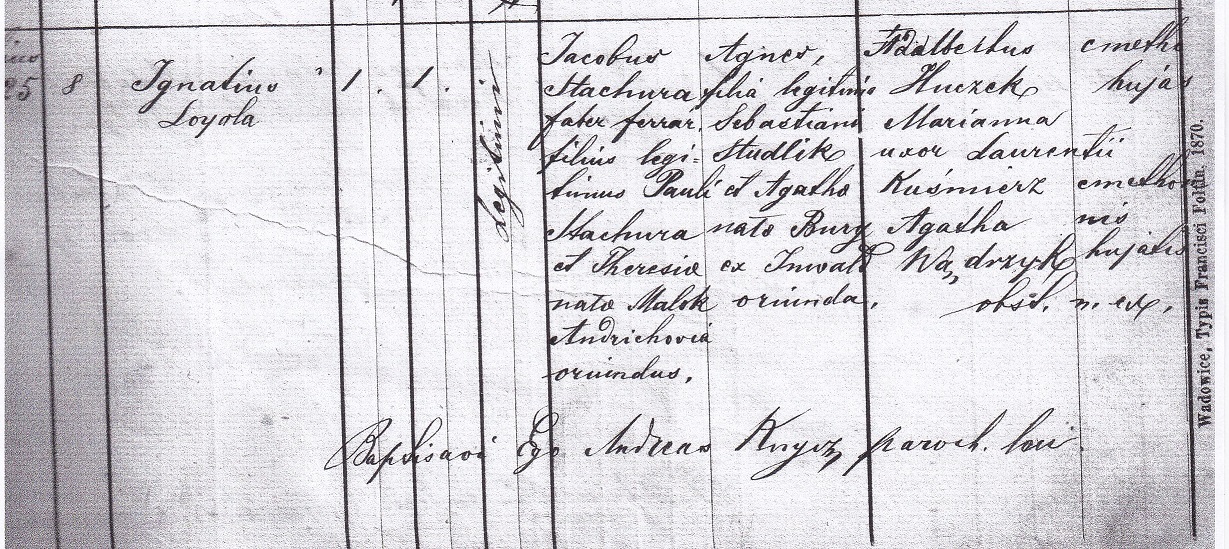 25 8 Ignatius Loyola 1. 1. legitimi
Jacobus
Stachura
faber ferrar.
filius legi=
timus Pauli
Stachura
et Theresiæ
natæ Malek
Andrichoviá
oriundus.
Agnes,
filia legitima
Sebastiani
Studlik
et Agathæ
natæ Bury
ex Inwald
oriunda.
Adalbertus
Huczek
Marianna
uxor Laurentii
Kuśmierz
Agatha
Wądrzyk
obst. n. ex.
cmetho
hujás
cmetho
nis
hujátis
Baptisavi Ego Andreas Knycz, paroch. loci.
Wadowice, Typis Francisci Foltin. 1870.